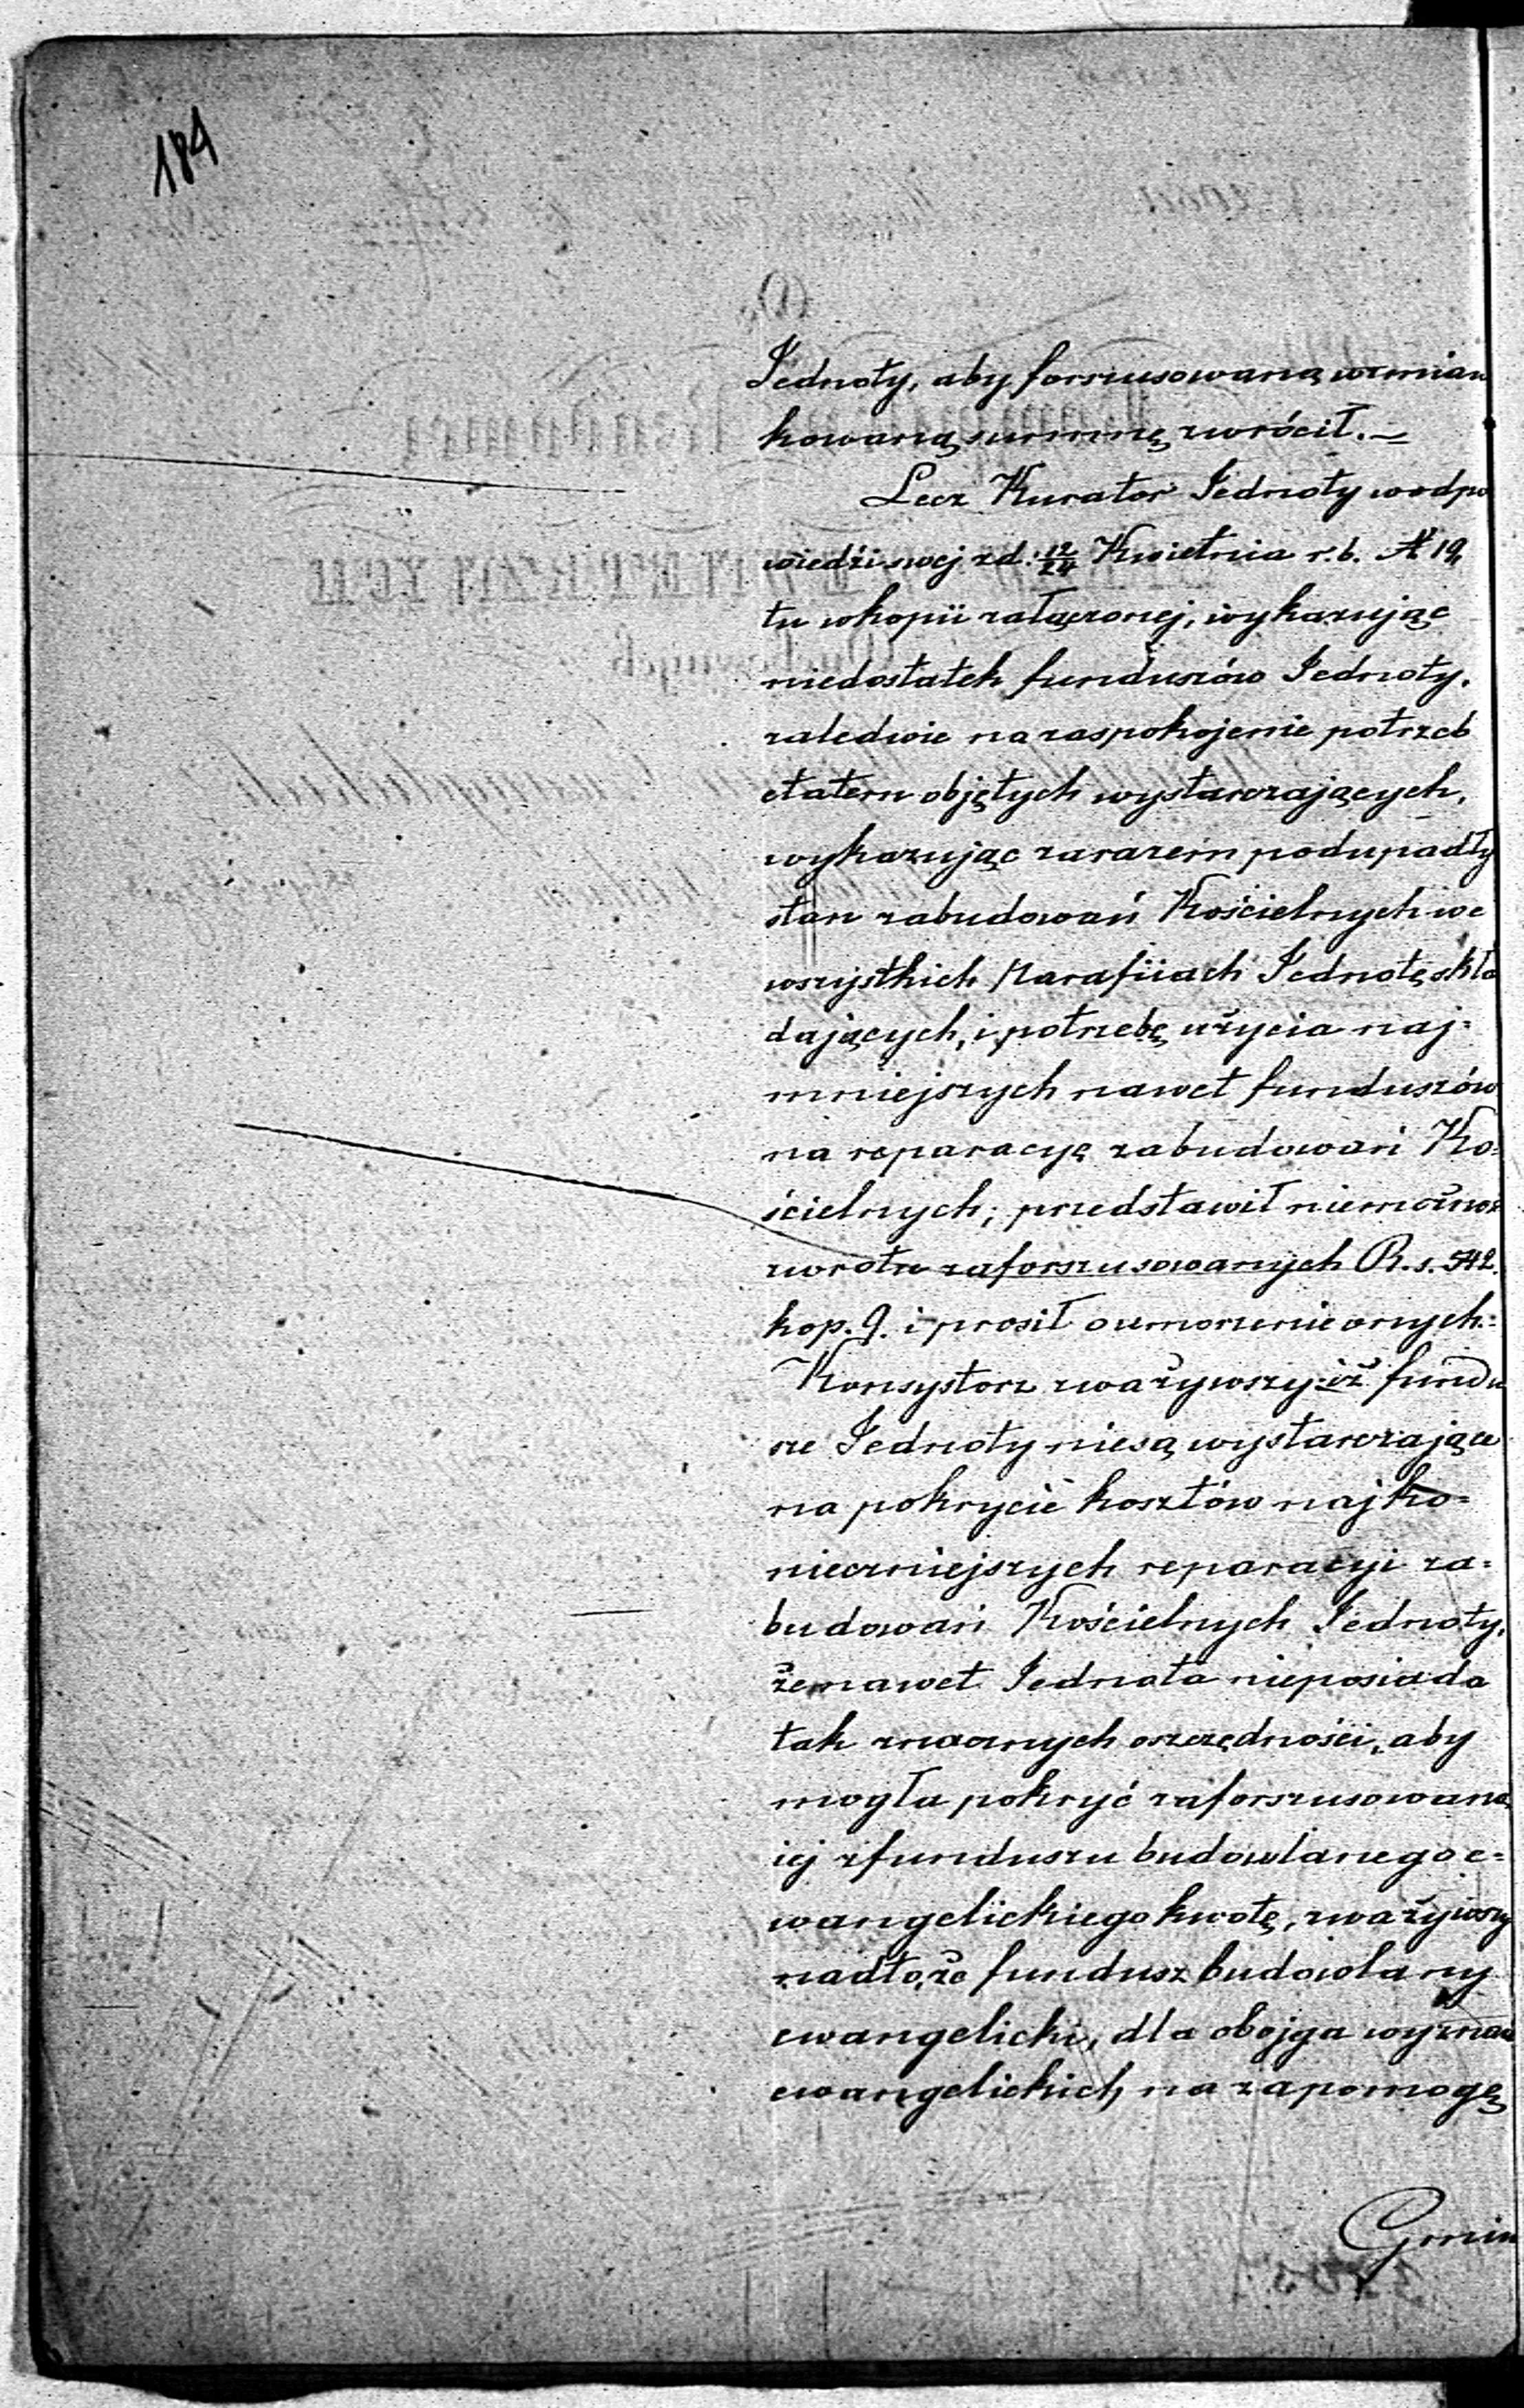 184
Jednoty, aby forszusowaną wzmian
kowaną summę zwrócił.—
Lecz Kurator Jednoty w odpo
wiedzi swej z d. 12/24 Kwietnia r. b. № 19,
tu w kopii załączonej, wykazując
niedostatek funduszów Jednoty,
zaledwie na zaspokojenie potrzeb
etatem objętych wystarczających,
wykazując zarazem podupadły
stan zabudowań Kościelnych we
wszystkich Parafiiach Jednotę skła
dających, i potrzebę użycia naj=
mniejszych nawet funduszów
na reparacyę zabudowań Ko=
ścielnych; przedstawił niemożnoś
zwrotu zaforszusowanych R. s. 542.
kop. 9. i prosił o umorzenie onych.=
Konsystorz zważywszy iż fundu
sze Jednoty nie są wystarczające
na pokrycie kosztów najko=
nieczniejszych reparacyi za=
budowań Kościelnych Jednoty,
że nawet Jednota nieposiada
tak znacznych oszczędności, aby
mogła pokryć zaforszusowaną
jej z funduszu budowlanego e=
wangelickiego kwotę, zważywszy
nadto, że fundusz budowlany
ewangelicki, dla obojga wyznań
ewangelickich na zapomogę
Gmin